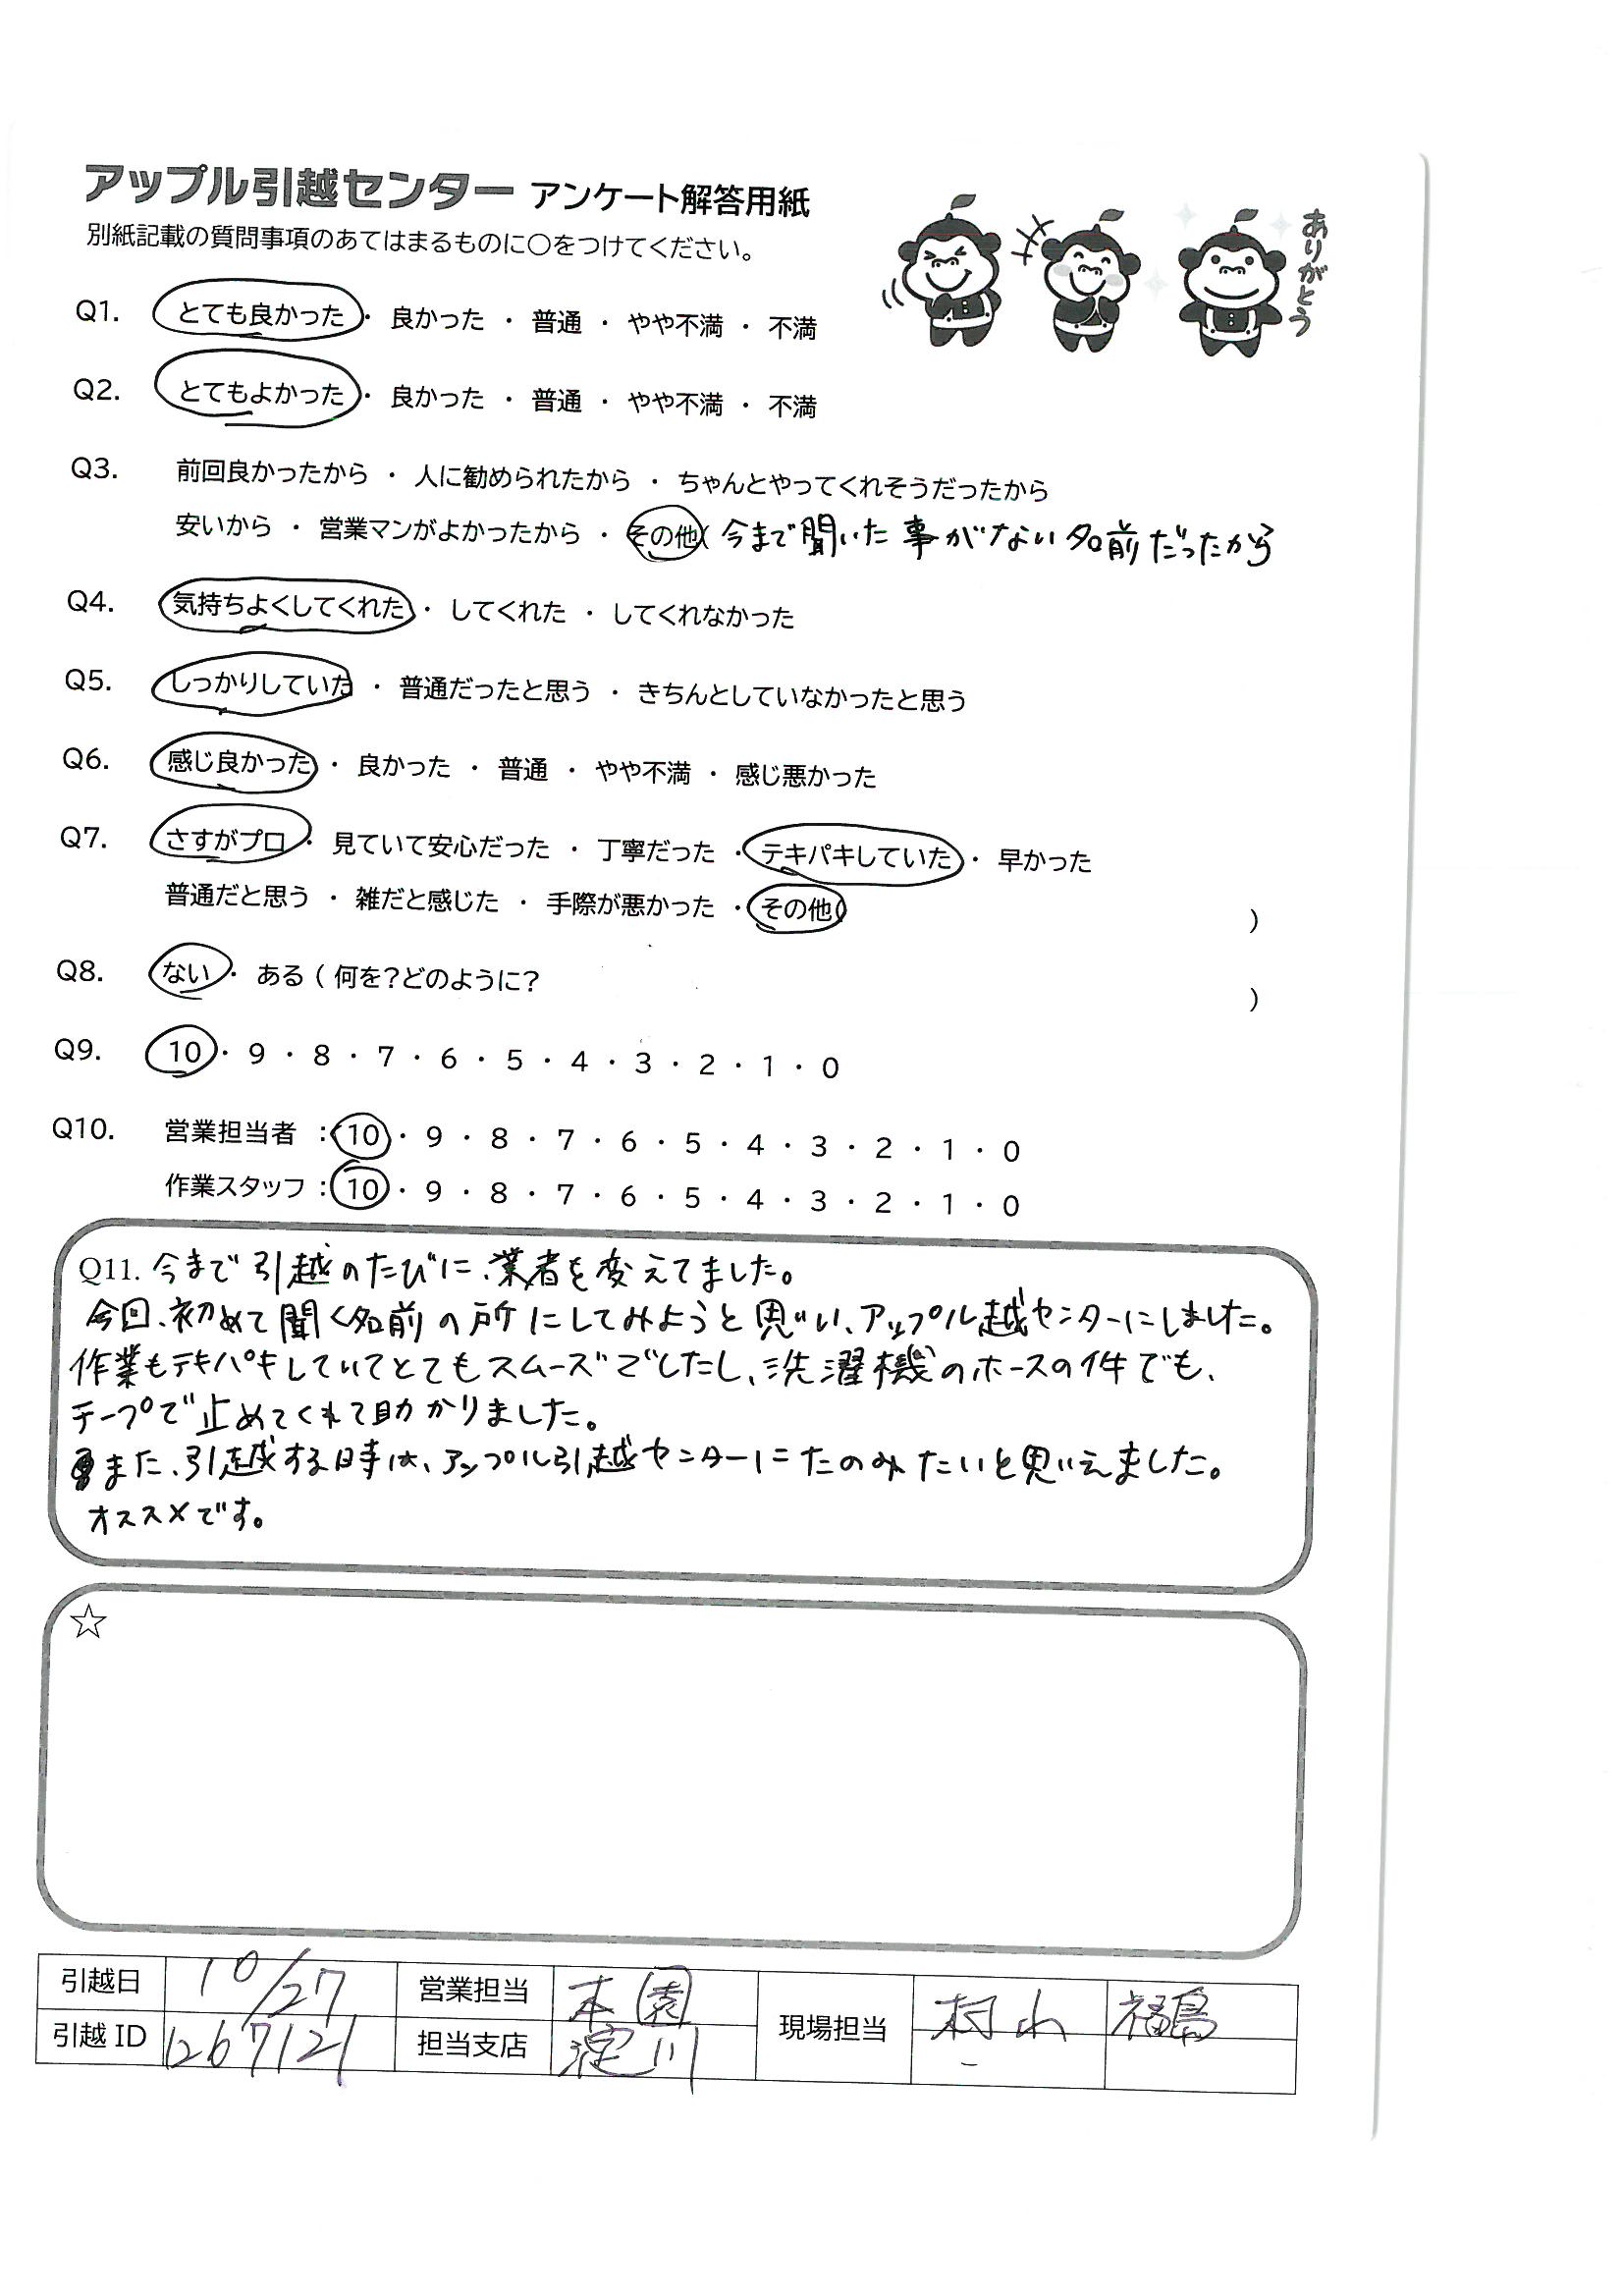 アップル引越センター アンケート解答用紙
別紙記載の質問事項のあてはまるものに〇をつけてください。
ありがとう
Q1. とても良かった ・ 良かった ・ 普通 ・ やや不満 ・ 不満
Q2. とてもよかった ・ 良かった ・ 普通 ・ やや不満 ・ 不満
Q3. 前回良かったから ・ 人に勧められたから ・ ちゃんとやってくれそうだったから
安いから ・ 営業マンがよかったから ・ その他( 今まで聞いた事がない名前だったから
Q4. 気持ちよくしてくれた ・ してくれた ・ してくれなかった
Q5. しっかりしていた ・ 普通だったと思う ・ きちんとしていなかったと思う
Q6. 感じ良かった ・ 良かった ・ 普通 ・ やや不満 ・ 感じ悪かった
Q7. さすがプロ ・ 見ていて安心だった ・ 丁寧だった ・ テキパキしていた ・ 早かった
普通だと思う ・ 雑だと感じた ・ 手際が悪かった ・ その他( )
Q8. ない ・ ある ( 何を?どのように? )
Q9. 10 ・ 9 ・ 8 ・ 7 ・ 6 ・ 5 ・ 4 ・ 3 ・ 2 ・ 1 ・ 0
Q10. 営業担当者 : 10 ・ 9 ・ 8 ・ 7 ・ 6 ・ 5 ・ 4 ・ 3 ・ 2 ・ 1 ・ 0
作業スタッフ : 10 ・ 9 ・ 8 ・ 7 ・ 6 ・ 5 ・ 4 ・ 3 ・ 2 ・ 1 ・ 0
Q11. 今まで引越のたびに、業者を変えてました。
今回、初めて聞く名前の所にしてみようと思い、アップル越センターにしました。
作業もテキパキしていてとてもスムーズでしたし、洗濯機のホースの件でも、
テープで止めてくれて助かりました。
また、引越する時は、アップル引越センターにたのみたいと思いえました。
オススメです。
☆
引越日 10/27 営業担当 本園 現場担当 村 福島
引越 ID 1267121 担当支店 淀川